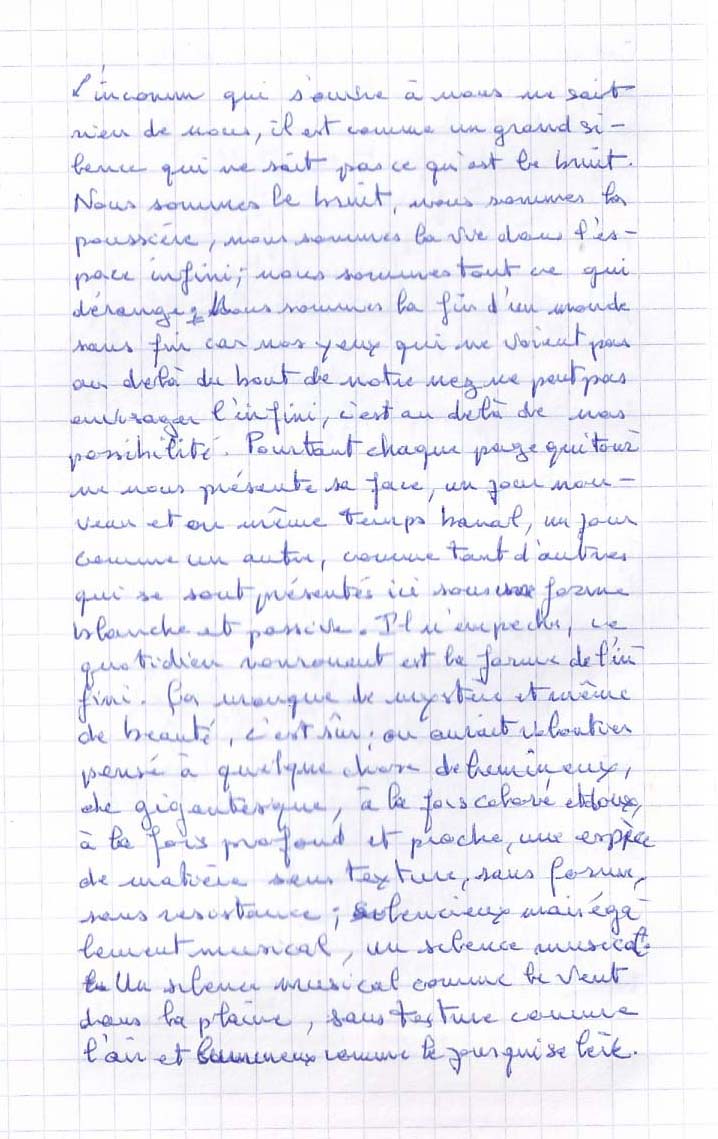 L'inconnu qui s'ouvre à nous ne sait
rien de nous, il est comme un grand si-
lence qui ne sait pas ce qu'est le bruit.
Nous sommes le bruit, nous sommes la
poussière, nous sommes la vie dans l'es-
pace infini; nous sommes tout ce qui
dérange. Nous sommes la fin d'un monde
sans fin car nos yeux qui ne voient pas
au delà du bout de notre nez ne peut pas
envisager l'infini, c'est au delà de nos
possibilité. Pourtant chaque page qui tour
ne nous présente sa face, un jour nou-
veau et en même temps banal, un jour
comme un autre, comme tant d'autres
qui se sont présentés ici sous une forme
blanche et passive. Il n'empêche, ce
quotidien ronronnant est la forme de l'in
fini. Ça manque de mystère et même
de beauté, c'est sûr; on aurait volontier
pensé à quelque chose de lumineux,
de gigantesque, à la fois coloré et doux,
à la fois profond et proche, une espèce
de matière sans texture, sans forme,
sans resistance; silencieux mais éga
lement musical, un silence musical.
Un silence musical comme le vent
dans la plaine, sans texture comme
l'air et lumineux comme le jour qui se lève.